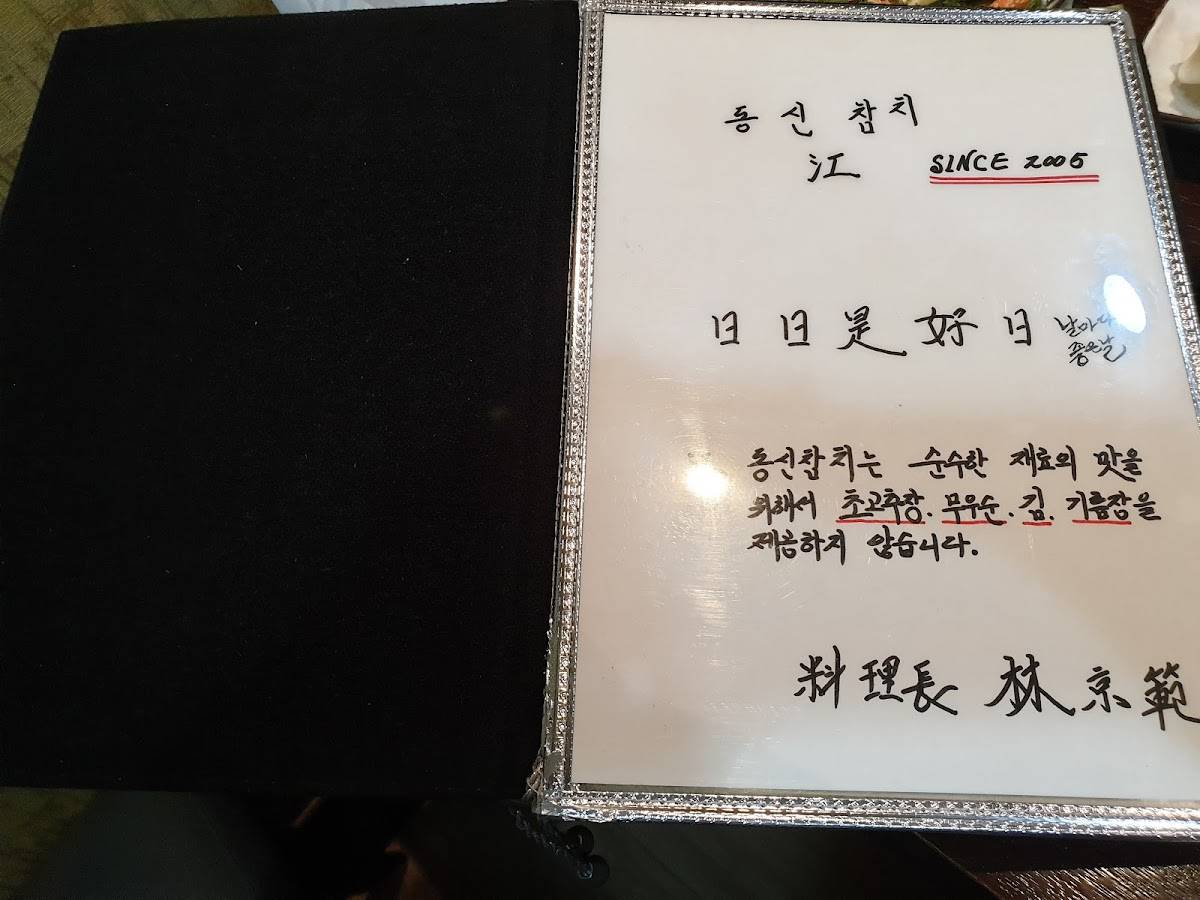 동신참치
江 SINCE 2005
日日是好日 날마다
좋은날
동신참치는 순수한 재료의 맛을
위해서 초고추장. 무우순. 김. 기름장을
제공하지 않습니다.
料理長 林京範